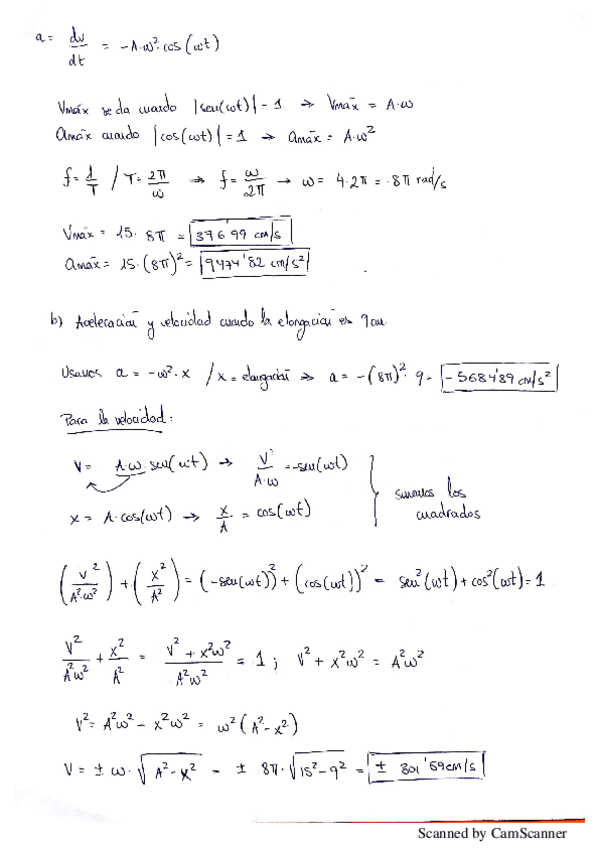 a = dv/dt = -A·ω²·cos(ωt)
Vmáx se da cuando |sen(ωt)| = 1 ⇒ Vmáx = A·ω
amáx cuando |cos(ωt)| = 1 ⇒ amáx = A·ω²
f = 1/T / T = 2π/ω ⇒ f = ω/2π → ω = 4·2π = 8π rad/s
Vmáx = 15· 8π = 376'99 cm/s
amáx = 15·(8π)² = 9474'82 cm/s²
b) Aceleración y velocidad cuando la elongación es 9cm.
Usamos a = -ω²·x / x = elongación ⇒ a = -(8π)²· 9 = -5684'89 cm/s²
Para la velocidad:
V = A·ω·sen(ωt) → V/A·ω = -sen(ωt)
x = A·cos(ωt) → x/A = cos(ωt)
sumamos los
cuadrados
(V²/A²ω²) + (x²/A²) = (-sen(ωt))² + (cos(ωt))² = sen²(ωt) + cos²(ωt) = 1
V²/A²ω² + x²/A² = V² + x²ω²/A²ω² = 1 ; V² + x²ω² = A²ω²
V² = A²ω² - x²ω² = ω²(A² - x²)
V = ± ω·√A² - x² = ± 8π·√15² - 9² = ± 301'59 cm/s
Scanned by CamScanner